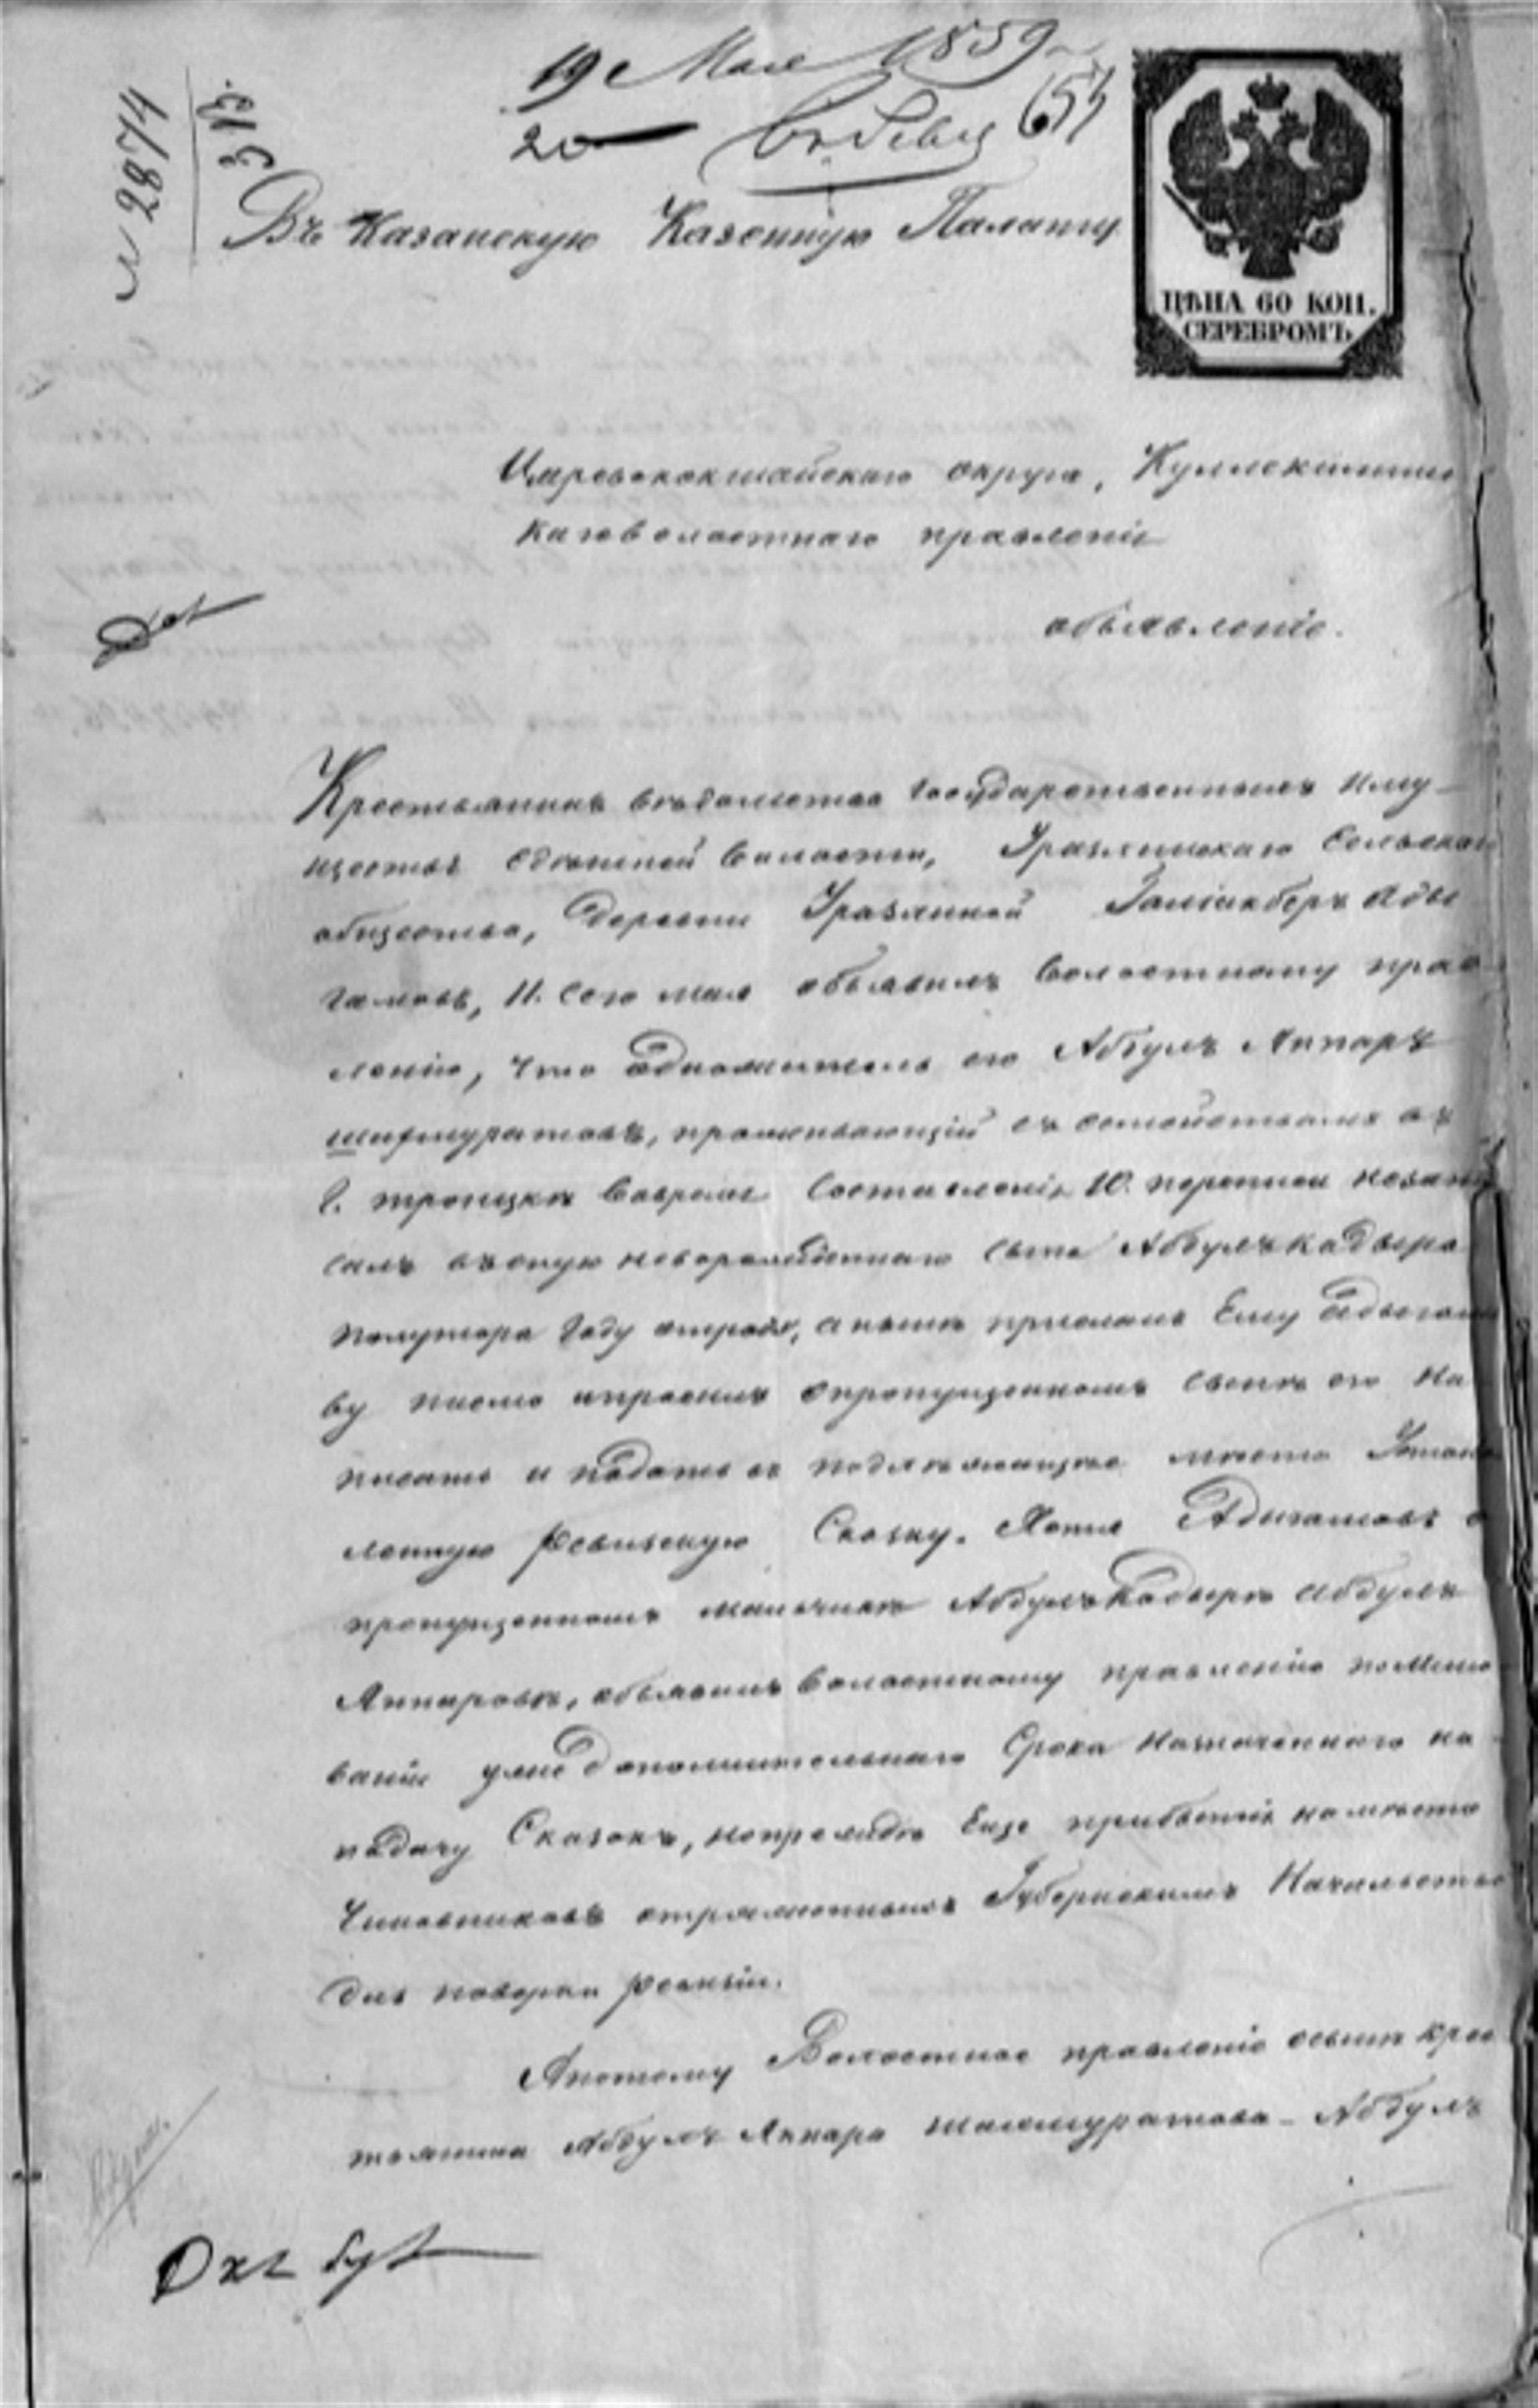 19 Мая 1859
20
653
№ 2874
3 ІЗ.
Въ Казанскую Казенную Палату
ЦѢНА 60 КОП.
СЕРЕБРОМЪ
Царевококшайскаго округа, Кулле
каго волостнаго правленія
объявленіе.
Крестьянинъ вѣдомства Государственныхъ Иму-
ществъ здѣшней волости, Уразлинскаго Сельскаго
общества, деревни Уразлиной Галіакберъ Ады
гамовъ, 11. сего мая объявилъ волостному прав
ленію, что однажитель его Абдулъ Аппаръ
Шагмуратовъ, проживающій съ семействомъ въ
г. Троицкѣ вовремя составленія 10. переписи незапи
салъ въ оную новорожденнаго сына Абдулъкадыра
полутора году отроду, а нынѣ прислалъ ему Адыгамо
ву письмо ипросилъ опропущенномъ сынѣ его на
писать и подать въ подлежащее мѣсто Установ
ленную ревизскую Сказку. Хотя Адыгамовъ о
пропущенномъ мальчикѣ Абдулъкадырѣ Абдулъ
Аппаровѣ, объявилъ волостному правленію поМино
ваніи уже дополнительнаго Срока назначеннаго на
подачу Сказокъ, нопрежде еще прибытія намѣсто
Чиновниковъ отряженныхъ Губернскимъ Начальство
для поверки ревизіи.
Апотому Волостное правленіе осынѣ крес
тьянина Абдулъ Аппара Шагмуратова - Абдулъ